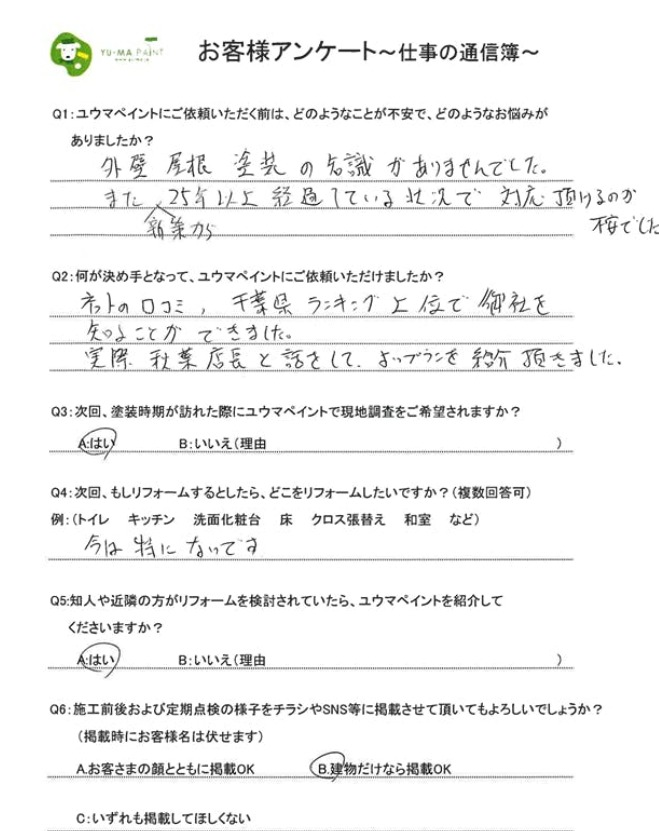 YU-MA PAINT
お客様アンケート～仕事の通信簿～
Q1:ユウマペイントにご依頼いただく前は、どのようなことが不安で、どのようなお悩みが
ありましたか？
外壁 屋根 塗装 の知識 がありませんでした。
また、25年以上 経過している状況で 対応頂けるのか
新築から
不安でした
Q2:何が決め手となって、ユウマペイントにご依頼いただけましたか？
ネットの口コミ, 千葉県 ランキング 上位で 御社を
知ることが できました。
実際 秋葉店長と話をして、 プランを 紹介 頂きました。
Q3:次回、塗装時期が訪れた際にユウマペイントで現地調査をご希望されますか？
A:はい B:いいえ(理由 )
Q4:次回、もしリフォームするとしたら、どこをリフォームしたいですか？(複数回答可)
例:(トイレ キッチン 洗面化粧台 床 クロス張替え 和室 など)
今は 特に ないです
Q5:知人や近隣の方がリフォームを検討されていたら、ユウマペイントを紹介して
くださいますか？
A:はい B:いいえ(理由 )
Q6:施工前後および定期点検の様子をチラシやSNS等に掲載させて頂いてもよろしいでしょうか？
(掲載時にお客様名は伏せます)
A.お客さまの顔とともに掲載OK B.建物だけなら掲載OK
C:いずれも掲載してほしくない